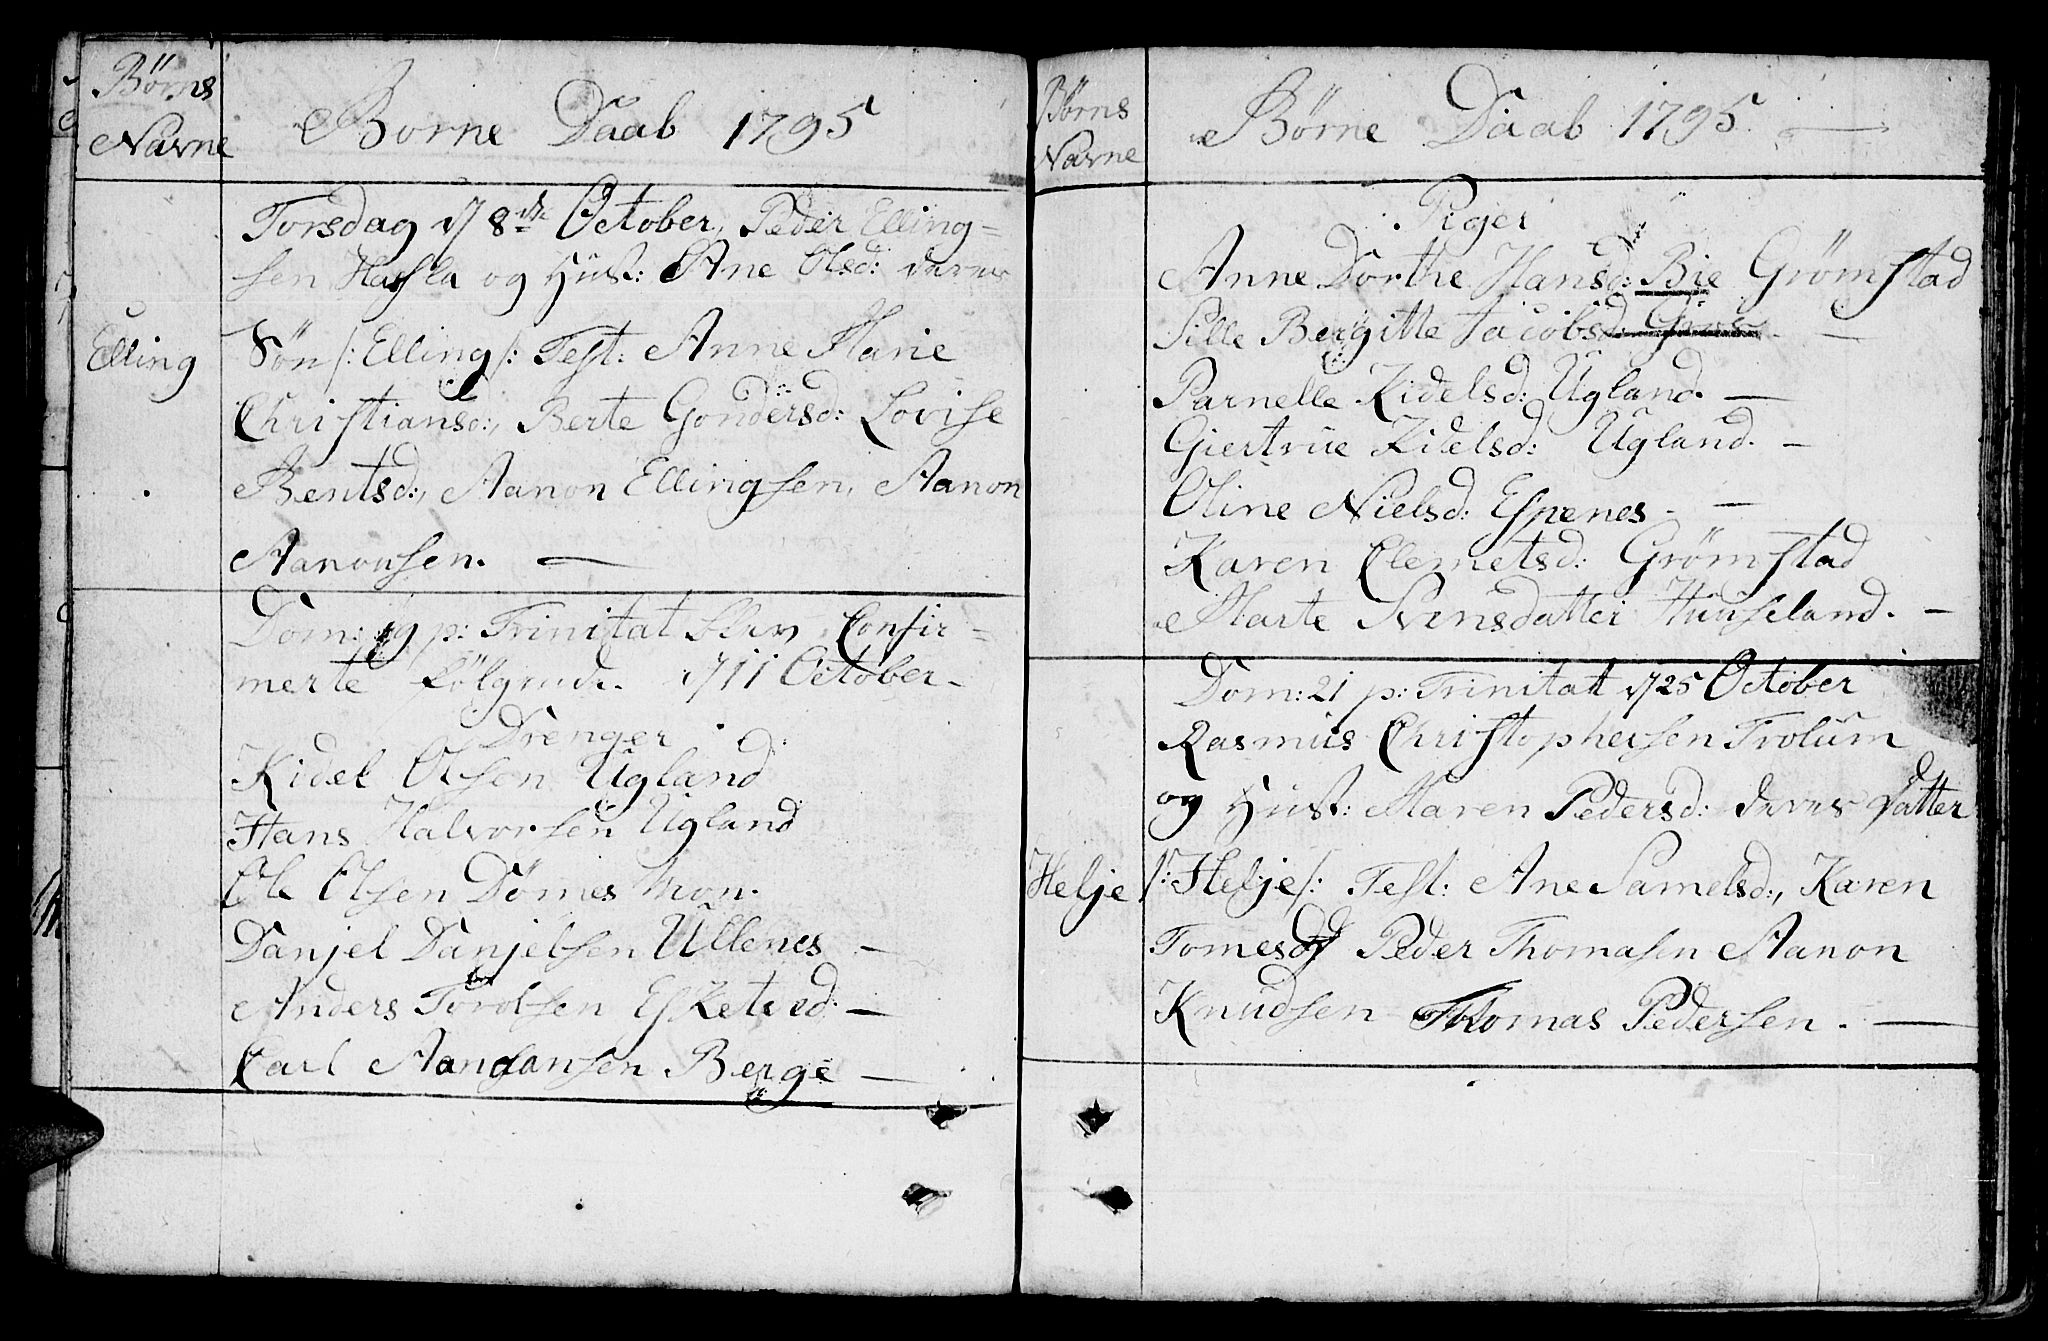 Börns
Navne
Borne Daab 1795
Torsdag d 8de October, Peder Elling=
sen Hassla og Hust: Ane Olsd: deres
Elling
Sön /: Elling /: Test: Anne Marie
Christiansd:, Berte Gondersd: Lovise
Bentsd:, Aanon Ellingsen, Aanon
Aanonsen. —
Dom: 19 p: Trinitat blev Confir=
merte fölgende. d 11 October.
Drenger
Kidel Olsen Ugland
Hans Halvorsen Ugland
Ole Olsen Dömes Mon.
Danjel Danjelsen Ullenes —
Anders Torolsen Esketved. —
Carl Aanonsen Berge —
Börns
Navne
Börne Daab 1795. —
Piger
Anne Dorthe Hansd: Bie Grömstad
Sille Bergitte Jacobsd: —
Parnelle Kidelsd: Ugland. —
Giertrue Kidelsd: Ugland. —
Oline Nielsd: Espenes. —
Karen Clemetsd: Grömstad
Marte Svensdatter Huuseland. —
Dom: 21 p: Trinitat d 25 October
Rasmus Christophersen Trolum
og Hust: Maren Pedersd: deres Datter
Helje
/: Helje /: Test: Ane Samelsd:, Karen
Tomesd Peder Thomasen Aanon
Knudsen Thomas Pedersen. —